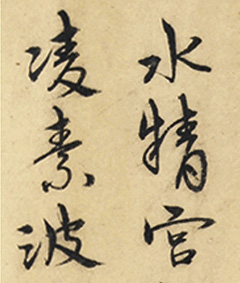 水精宫
凌素波